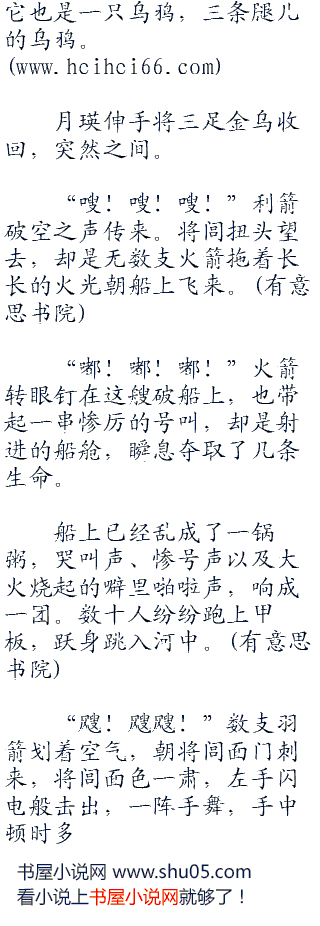 它也是一只乌鸦，三条腿儿
的乌鸦。
(www.hcihci66.com)
月瑛伸手将三足金乌收
回，突然之间。
“嗖！嗖！嗖！”利箭
破空之声传来。将闾扭头望
去，却是无数支火箭拖着长
长的火光朝船上飞来。(有意
思书院)
“嘟！嘟！嘟！”火箭
转眼钉在这艘破船上，也带
起一串惨厉的号叫，却是射
进的船舱，瞬息夺取了几条
生命。
船上已经乱成了一锅
粥，哭叫声、惨号声以及大
火烧起的噼里啪啦声，响成
一团。数十人纷纷跑上甲
板，跃身跳入河中。(有意思
书院)
“飕！飕飕！”数支羽
箭划着空气，朝将闾面门刺
来，将闾面色一肃，左手闪
电般击出，一阵手舞，手中
顿时多
书屋小说网 www.shu05.com
看小说上书屋小说网就够了！